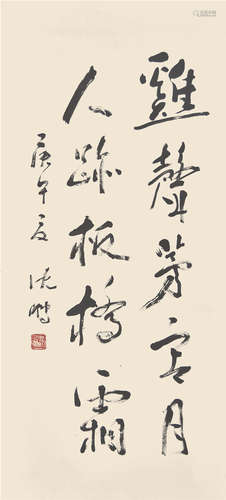 雞聲茅店月
人跡板橋霜
庚午夏沈鵬